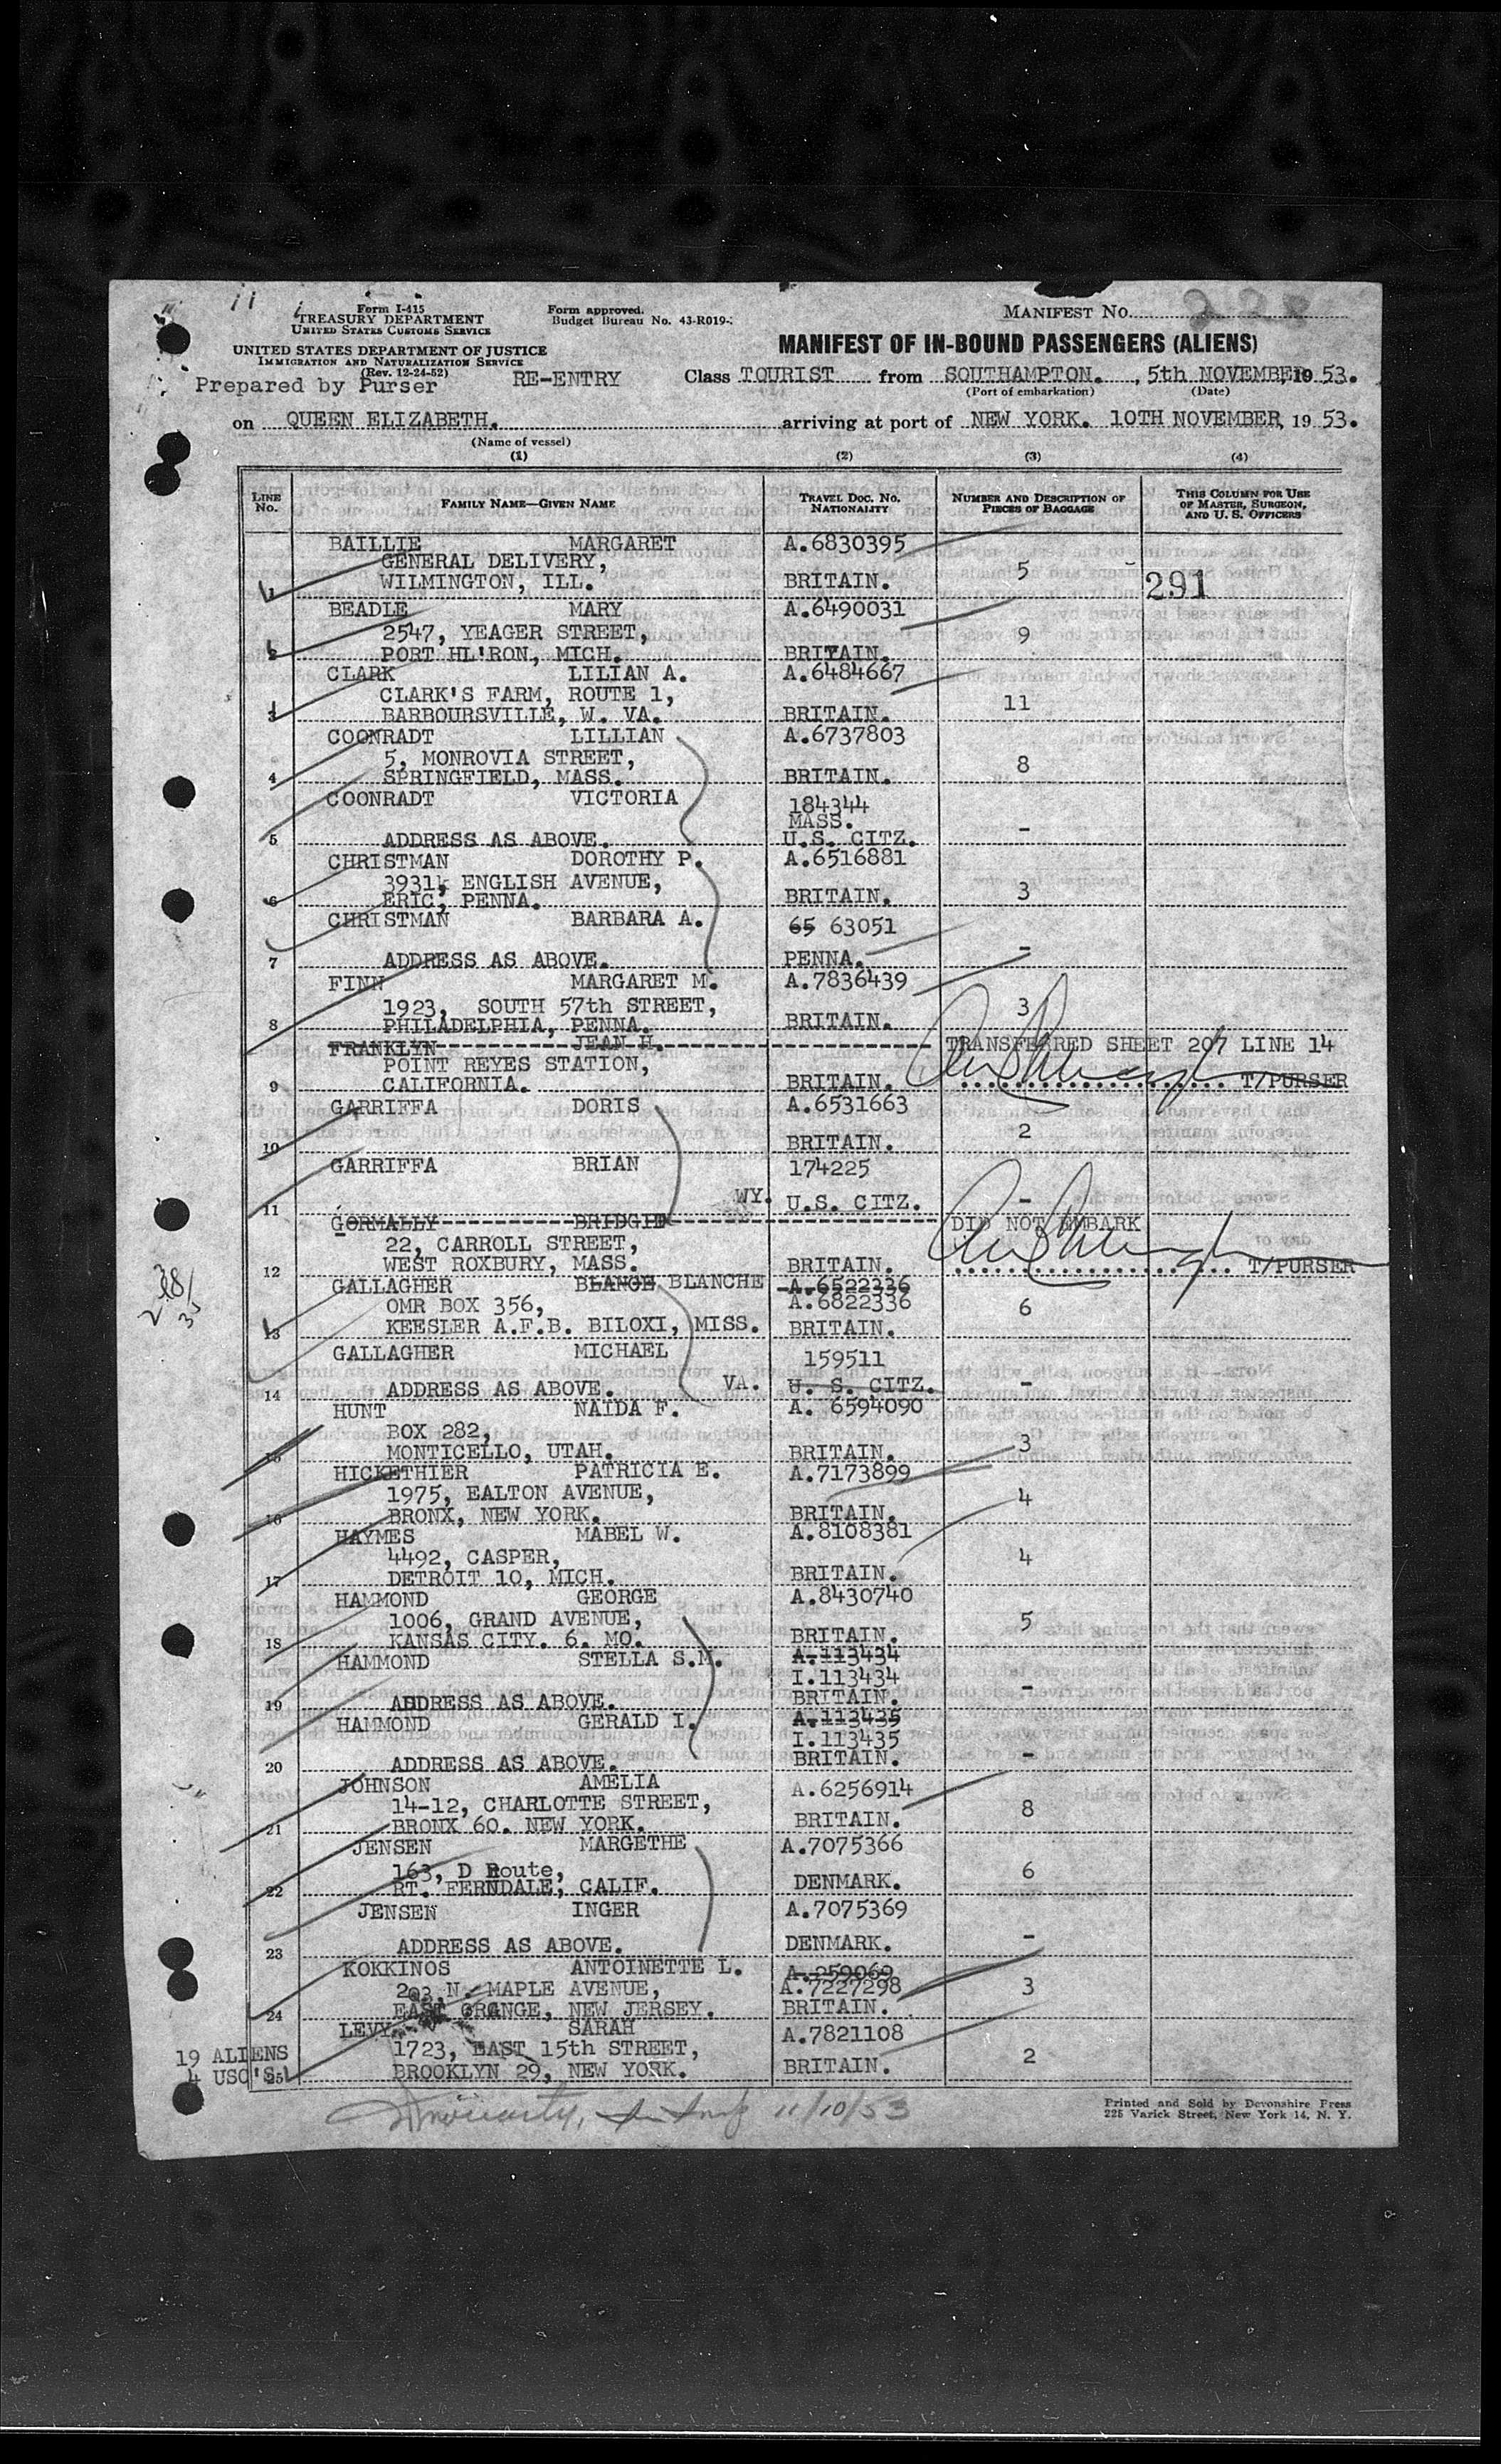 Form I-415
TREASURY DEPARTMENT
UNITED STATES CUSTOMS SERVICE
Form approved.
Budget Bureau No. 43-R019-
MANIFEST NO.
UNITED STATES DEPARTMENT OF JUSTICE
IMMIGRATION AND NATURALIZATION SERVICE
(Rev. 12-24-52)
MANIFEST OF IN-BOUND PASSENGERS (ALIENS)
Prepared by Purser RE-ENTRY Class TOURIST from SOUTHAMPTON. , 5th NOVEMBER, 19 53.
(Port of embarkation) (Date)
on QUEEN ELIZABETH. arriving at port of NEW YORK. 10TH NOVEMBER, 19 53.
(Name of vessel)
(1) (2) (3) (4)
LINE No. FAMILY NAME—GIVEN NAME TRAVEL DOC. NO. NATIONALITY NUMBER AND DESCRIPTION OF PIECES OF BAGGAGE THIS COLUMN FOR USE OF MASTER, SURGEON, AND U. S. OFFICERS
BAILLIE MARGARET A.6830395
GENERAL DELIVERY, 5
1 WILMINGTON, ILL. BRITAIN. 291
BEADLE MARY A.6490031
2547, YEAGER STREET, 9
2 PORT HL'RON, MICH. BRITAIN.
CLARK LILIAN A. A.6484667
CLARK'S FARM, ROUTE 1, 11
3 BARBOURSVILLE, W. VA. BRITAIN.
COONRADT LILLIAN A.6737803
5, MONROVIA STREET, 8
4 SPRINGFIELD, MASS. BRITAIN.
COONRADT VICTORIA 184344
MASS.
5 ADDRESS AS ABOVE. U.S. CITZ. -
CHRISTMAN DOROTHY P. A.6516881
3931, ENGLISH AVENUE, 3
6 ERIC, PENNA. BRITAIN.
CHRISTMAN BARBARA A. 65 63051
7 ADDRESS AS ABOVE. PENNA. -
FINN MARGARET M. A.7836439
1923, SOUTH 57th STREET, 3
8 PHILADELPHIA, PENNA. BRITAIN.
FRANKLYN JEAN H. TRANSFERRED SHEET 207 LINE 14
POINT REYES STATION,
9 CALIFORNIA. BRITAIN. T/PURSER
GARRIFFA DORIS A.6531663
10 BRITAIN. 2
GARRIFFA BRIAN 174225
11 WY. U.S. CITZ. -
GORMALLY BRIDGIE DID NOT EMBARK
22, CARROLL STREET,
12 WEST ROXBURY, MASS. BRITAIN. T/PURSER
GALLAGHER BLANCE BLANCHE A.6522336
OMR BOX 356, A.6822336 6
13 KEESLER A.F.B. BILOXI, MISS. BRITAIN.
GALLAGHER MICHAEL 159511
14 ADDRESS AS ABOVE. VA. U. S. CITZ. -
HUNT NAIDA F. A. 6594090
BOX 282, 3
15 MONTICELLO, UTAH. BRITAIN.
HICKETHIER PATRICIA E. A.7173899
1975, EALTON AVENUE, 4
16 BRONX, NEW YORK. BRITAIN.
HAYMES MABEL W. A.8108381
4492, CASPER, 4
17 DETROIT 10, MICH. BRITAIN.
HAMMOND GEORGE A.8430740
1006, GRAND AVENUE, 5
18 KANSAS CITY. 6. MO. BRITAIN.
HAMMOND STELLA S.M. A.113434
I.113434
19 ADDRESS AS ABOVE. BRITAIN. -
HAMMOND GERALD I. A.113435
I.113435
20 ADDRESS AS ABOVE. BRITAIN. -
JOHNSON AMELIA A.6256914
14-12, CHARLOTTE STREET, 8
21 BRONX 60. NEW YORK. BRITAIN.
JENSEN MARGETHE A.7075366
163, D Route, 6
22 RT. FERNDALE, CALIF. DENMARK.
JENSEN INGER A.7075369
23 ADDRESS AS ABOVE. DENMARK. -
KOKKINOS ANTOINETTE L. A.259069
203 N. MAPLE AVENUE, A.7227298 3
24 EAST ORANGE, NEW JERSEY. BRITAIN.
LEVY SARAH A.7821108
19 ALIENS 1723, EAST 15th STREET, 2
4 USC'S 25 BROOKLYN 29, NEW YORK. BRITAIN.
11/10/53
Printed and Sold by Devonshire Press
225 Varick Street, New York 14, N. Y.